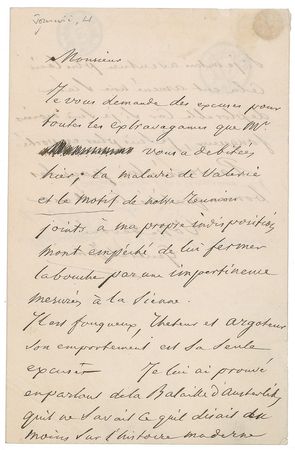 Monsieur
Je vous demande des excuses pour
toutes les extravagances que Mr
vous a debitées
hier; la maladie de Valerie
et le motif de notre reunion
joints à ma propre indisposition
m'ont empéché de lui fermer
la bouche par une impertinence
mesurée à la sienne.
Il est fougueux, rheteur et argoteur
son emportement est sa seule
excuse Je lui ai prouvé
en parlant de la Bataille d'Austerlitz,
qu'il ne savait ce qu'il disait du
moins sur l'histoire moderne